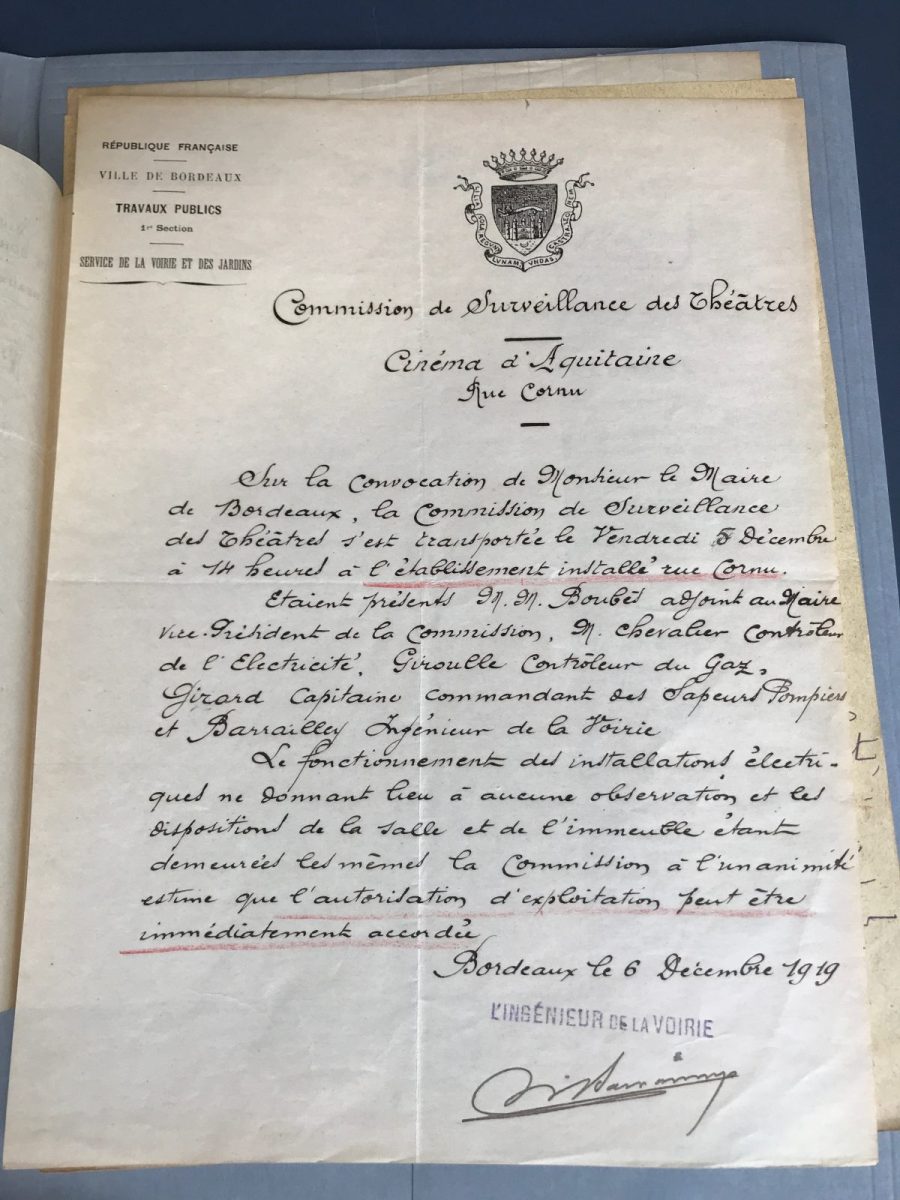 RÉPUBLIQUE FRANÇAISE
VILLE DE BORDEAUX
TRAVAUX PUBLICS
1re Section
SERVICE DE LA VOIRIE ET DES JARDINS
LILIA SOLA REGUNT
LUNAM UNDAS
CASTRA LEONEM
Commission de Surveillance des Théâtres
Cinéma d'Aquitaine
Rue Cornu
Sur la convocation de Monsieur le Maire
de Bordeaux, la Commission de Surveillance
des Théâtres s'est transportée le Vendredi 5 Décembre
à 14 heures à l'établissement installé rue Cornu.
Etaient présents M. M. Boubès adjoint au Maire
Vice-Président de la Commission, M. Chevalier Contrôleur
de l'Electricité, Giroulle Contrôleur du Gaz,
Girard Capitaine commandant des Sapeurs Pompiers
et Barrailley Ingénieur de la Voirie
Le fonctionnement des installations électri-
ques ne donnant lieu à aucune observation et les
dispositions de la salle et de l'immeuble étant
demeurées les mêmes la Commission à l'unanimité
estime que l'autorisation d'exploitation peut être
immédiatement accordée
Bordeaux le 6 Décembre 1919
L'INGÉNIEUR DE LA VOIRIE